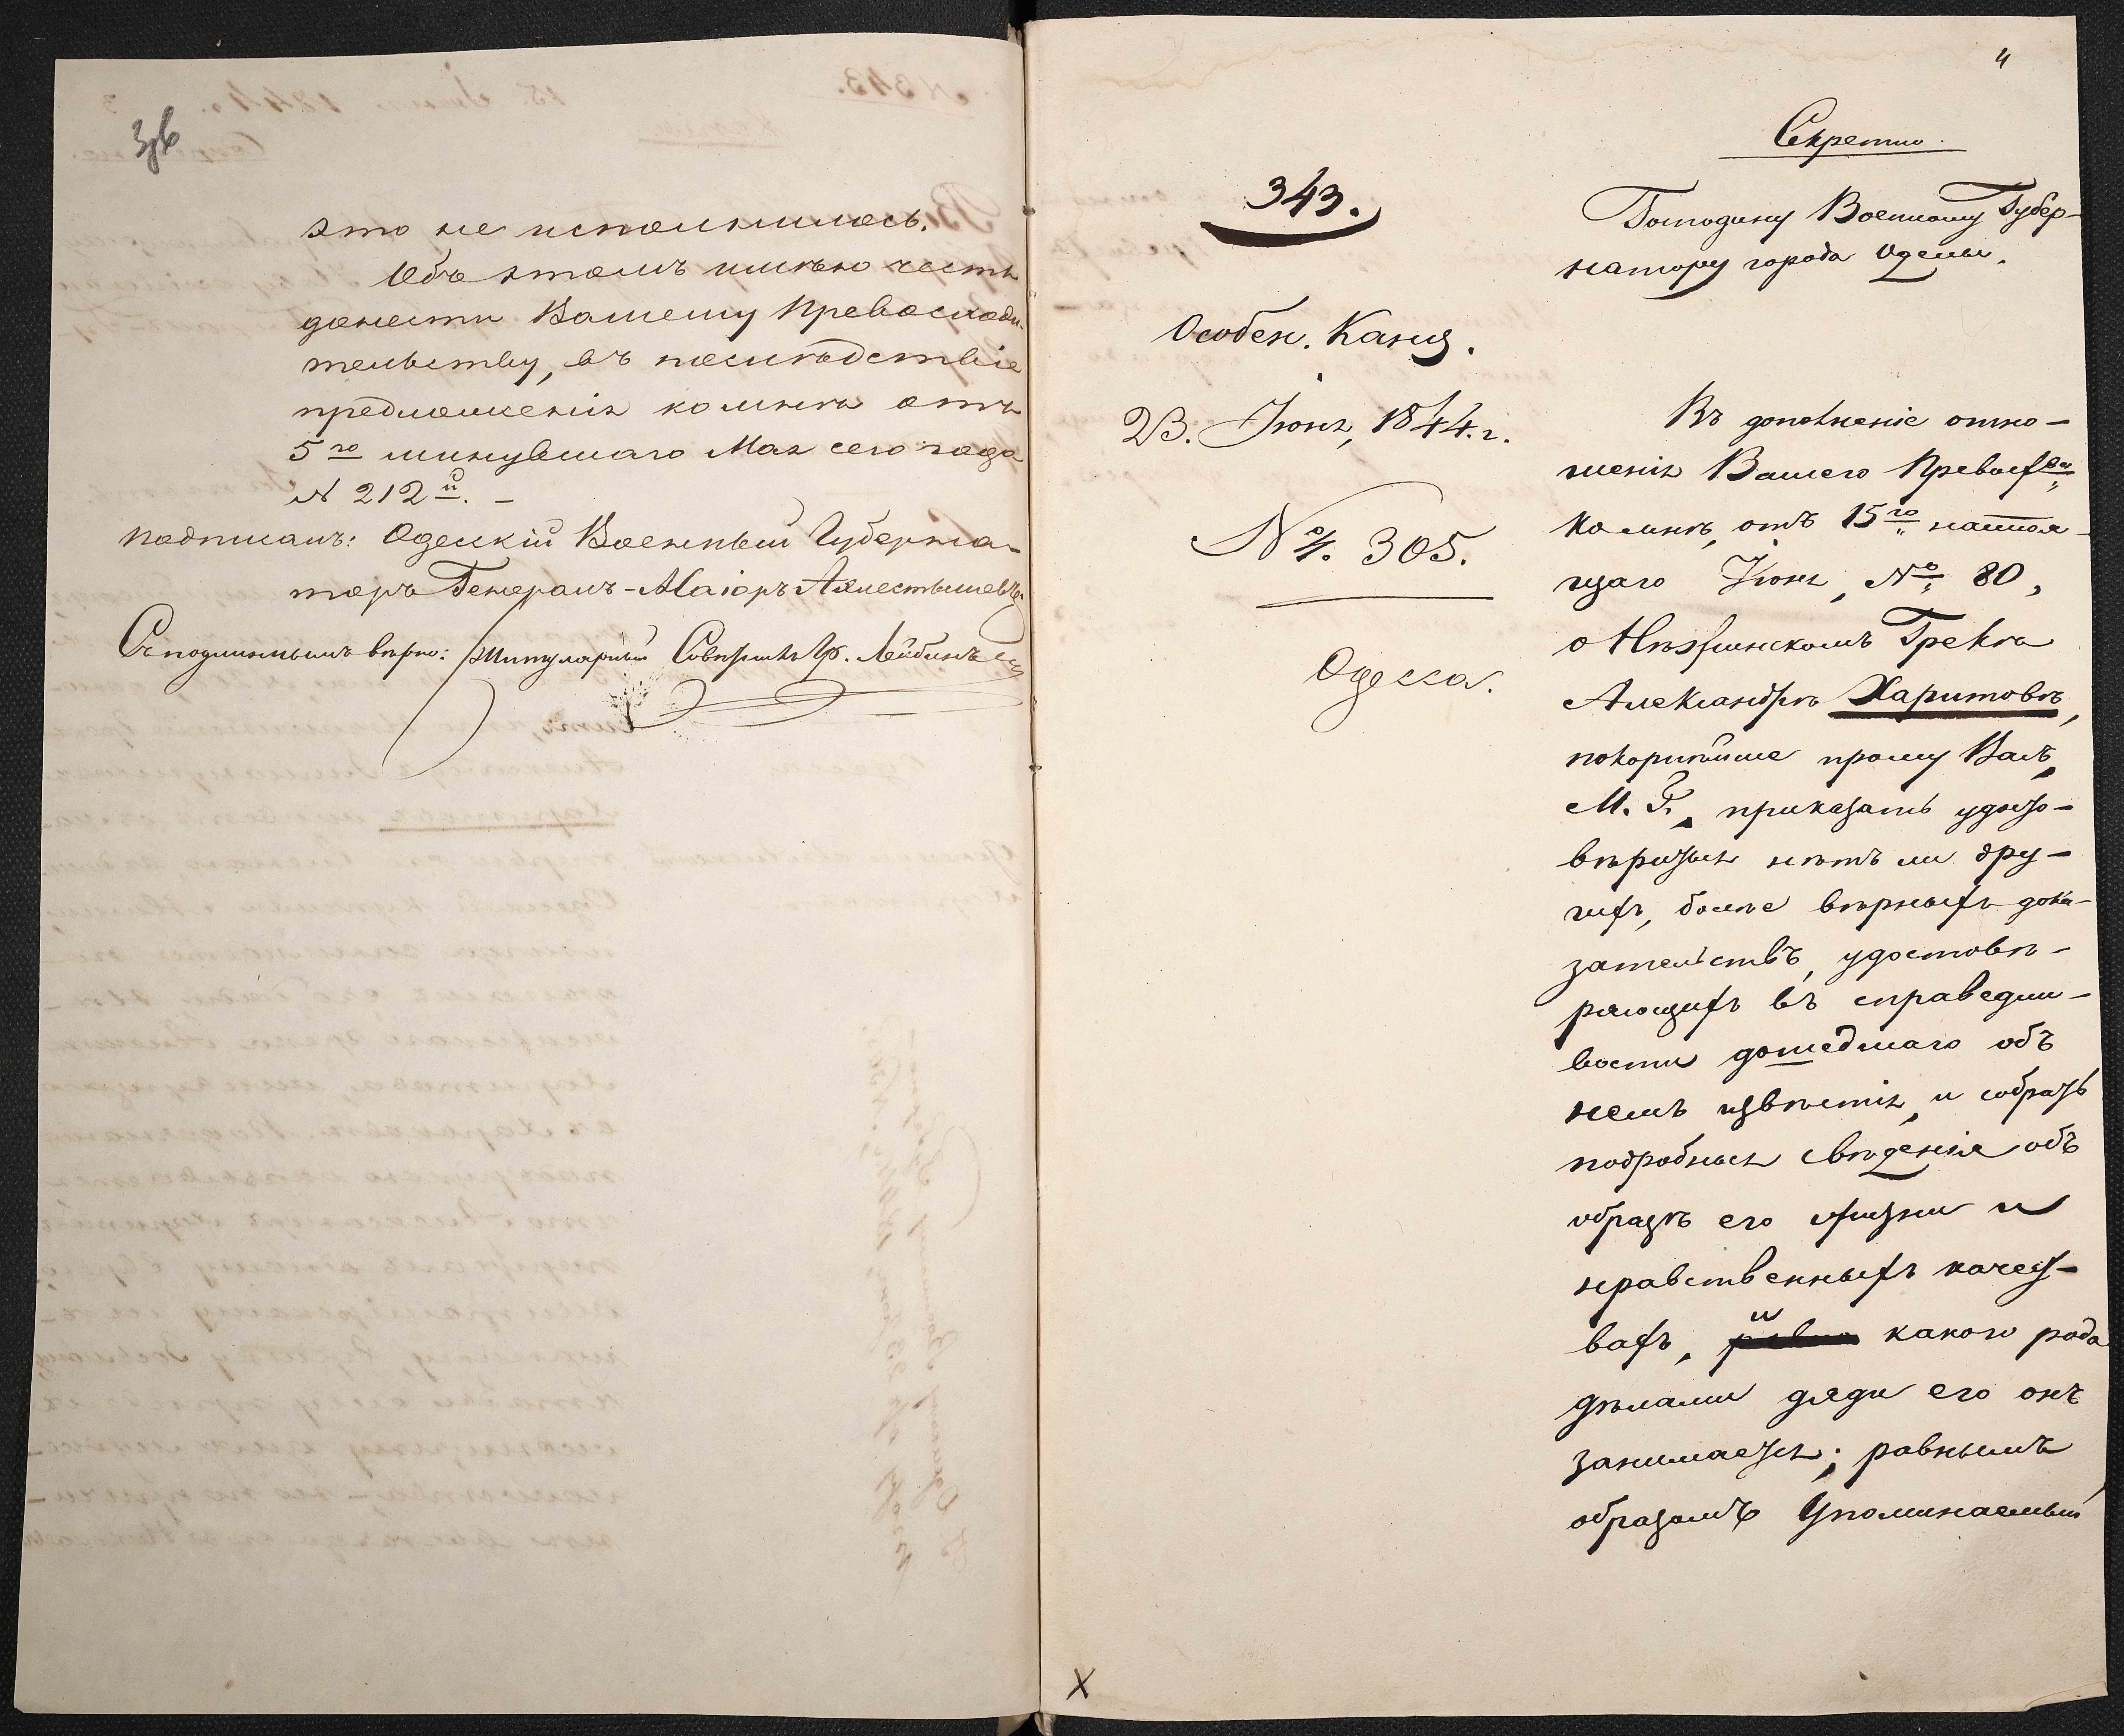 3б
это не исполнилось.
Объ этомъ имѣю честь
донести Вашему Превосходи-
тельству, въ послѣдствіе
предложенія ко мнѣ отъ
5го минувшаго Мая сего года
N 212й. —
подписалъ: Одесскій Военный Губерна-
торъ Генералъ-Маіоръ Ахлестышевъ
Съ подлиннымъ вѣрно: Титулярный Совѣтникъ
4
Секретно.
343.
Господину Военному Губер-
натору города Одессы.
Особен. Канц.
23. Іюня, 1844. г.
№ 305.
Одесса.
Въ дополненіе отно-
шенія Вашего Превосх̄ва
ко мнѣ, отъ 15го настоя-
щаго Іюня, № 80,
о Нѣжинскомъ Грекѣ
Александрѣ Харитовѣ,
покорнѣйше прошу Васъ,
М. Г., приказать удосто-
вѣриться нѣтъ ли дру-
гихъ, болѣе вѣрныхъ дока-
зательствъ, удостовѣ-
ряющихъ въ справедли-
вости дошедшаго объ
немъ извѣстія, и собрать
подробныя свѣденія объ
образѣ его жизни и
нравственныхъ качест-
вахъ, и какого рода
дѣлами дяди его онъ
занимается; равнымъ
образомъ упоминаемый
X